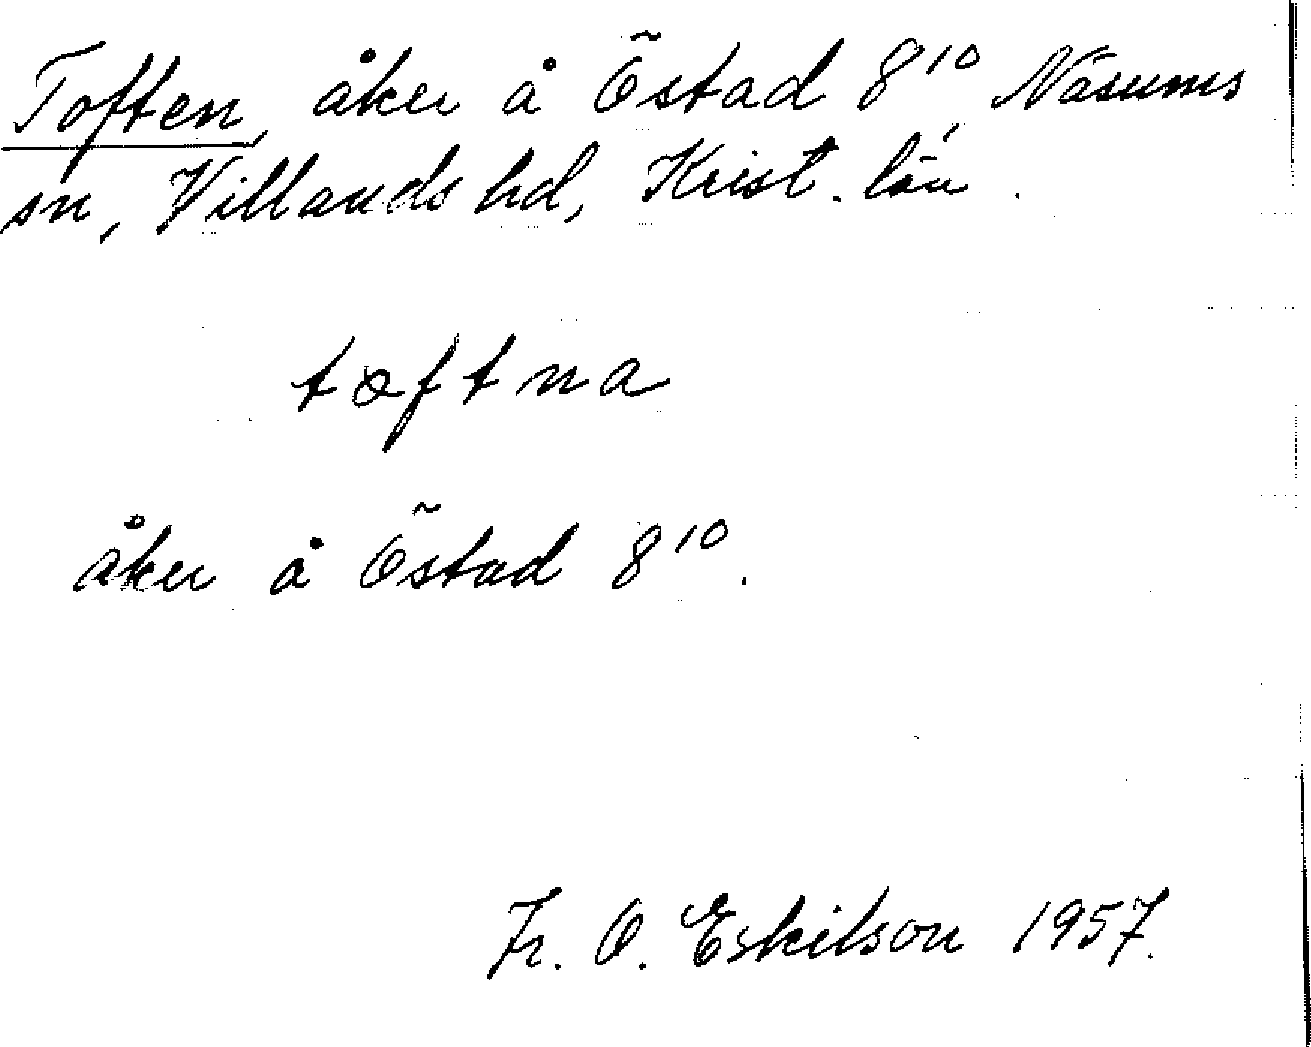 Toften, åker å Östad 8¹⁰, Näsums
sn, Villands hd, Krist. län.
tæftna
åker å Östad 8¹⁰.
Fr. O. Eskilson 1957.